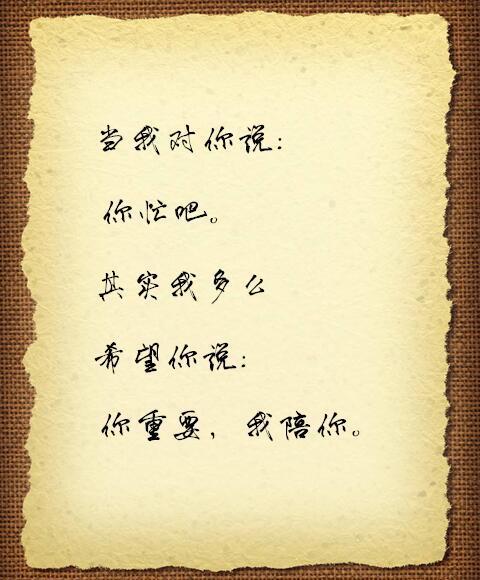 当我对你说:
你忙吧。
其实我多么
希望你说:
你重要，我陪你。